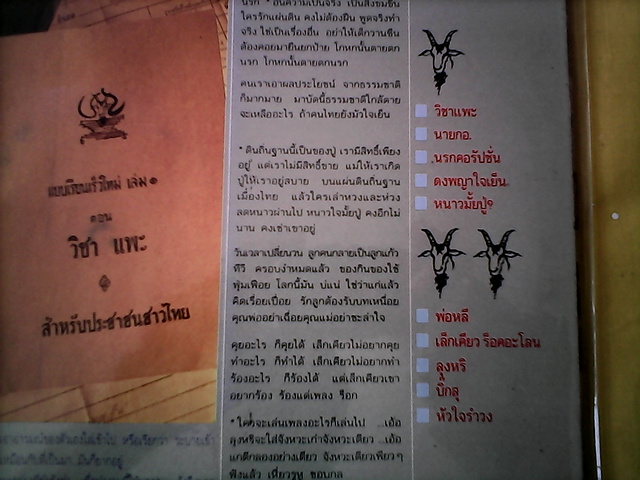 แบบเรียนเร็วใหม่ เล่ม ๑
ตอน
วิชา แพะ
สำหรับประชาชนชาวไทย
นรก * อันความเป็นจริง
ใครรักแผ่นดิน คงไม่ต้องฝืน พูดจริงทำ
จริง ใช่เป็นเรื่องอื่น อย่าให้เด็กวานซืน
ต้องคอยมายืนยกป้าย โกหกนั้นตายตก
นรก โกหกนั้นตายตกนรก
คนเราเอาผลประโยชน์ จากธรรมชาติ
ก็มากมาย มาบัดนี้ธรรมชาติใกล้ตาย
จะเหลืออะไร ถ้าคนไทยยังมัวใจเย็น
* ดินถิ่นฐานนี้เป็นของปู่ เรามีสิทธิ์เพียง
อยู่ แต่เราไม่มีสิทธิ์ขาย แม่ให้เราเกิด
ปู่ให้เราอยู่สบาย บนแผ่นดินถิ่นฐาน
เมืองไทย แล้วใครเล่าหวงและห่วง
ลดหนาวผ่านไป หนาวใจมั้ยปู่ คงอีกไม่
นาน คงเช่าเขาอยู่
วันเวลาเปลี่ยนวน ลูกคนกลายเป็นลูกแก้ว
ทีวี ครอบงำหมดแล้ว ของกินของใช้
ฟุ่มเฟือย โลกนี้มัน บ่แน่ ใช่ว่าแก่แล้ว
คิดเรื่อยเปื่อย รักลูกต้องรับบทเหนื่อย
คุณพ่ออย่าเฉื่อยคุณแม่อย่าชะล่าใจ
คุยอะไร ก็คุยได้ เล็กเคียวไม่อยากคุย
ทำอะไร ก็ทำได้ เล็กเคียวไม่อยากทำ
ร้องอะไร ก็ร้องได้ แต่เล็กเคียวเขา
อยากร้อง ร้องแต่เพลง ร็อก
* ใครจะเล่นเพลงอะไรก็เล่นไป ...เอ้อ
ลุงหริจะใส่จังหวะเก่าจังหวะเดียว ...เอ้อ
แกตีกลองอย่างเดียว จังหวะเดียวเพียวๆ
ฟังแล้ว เหี่ยวรูหู ชอบกล
วิชาแพะ
นายกอ.
นรกคอรัปชั่น
ดงพญาใจเย็น
หนาวมั้ยปู่?
พ่อหลี
เล็กเคียว ร็อคอะโลน
ลุงหริ
บิ๊กลุ
หัวใจรำวง